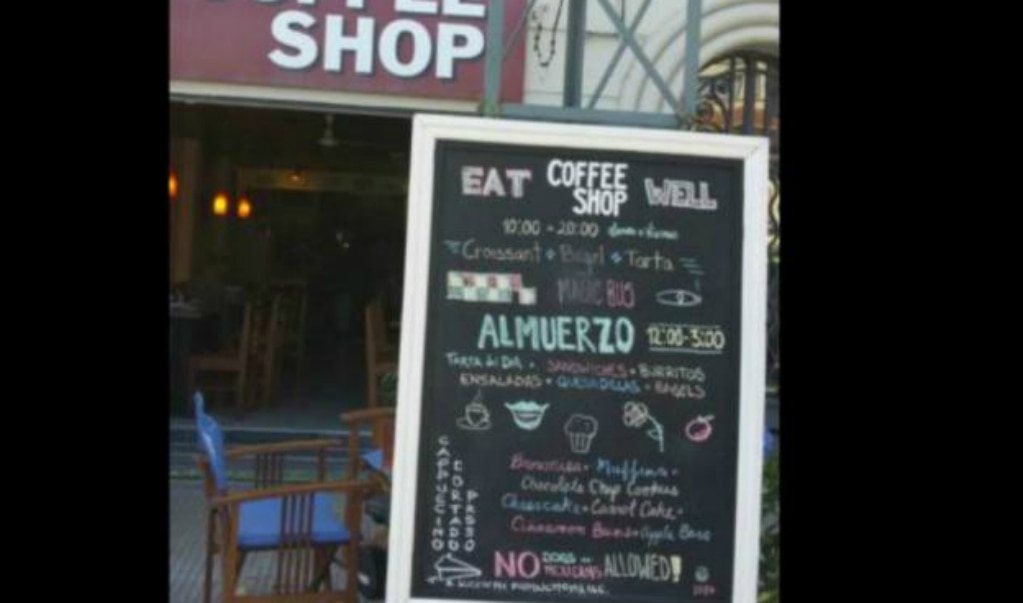 SHOP
EAT COFFEE SHOP WELL
10:00 - 20:00
Croissant + Bagel + Tarta
MAGIC BUS
ALMUERZO 12:00-3:00
TARTA del DIA + SANDWICHES + BURRITOS
ENSALADAS + QUESADILLAS + BAGELS
CAPPUCCINO
CORTADO
Brownies + Muffins +
Chocolate Chip Cookies
Cheesecake + Carrot Cake +
Cinnamon Buns + Apple
NO DOGS MEXICANS ALLOWED!